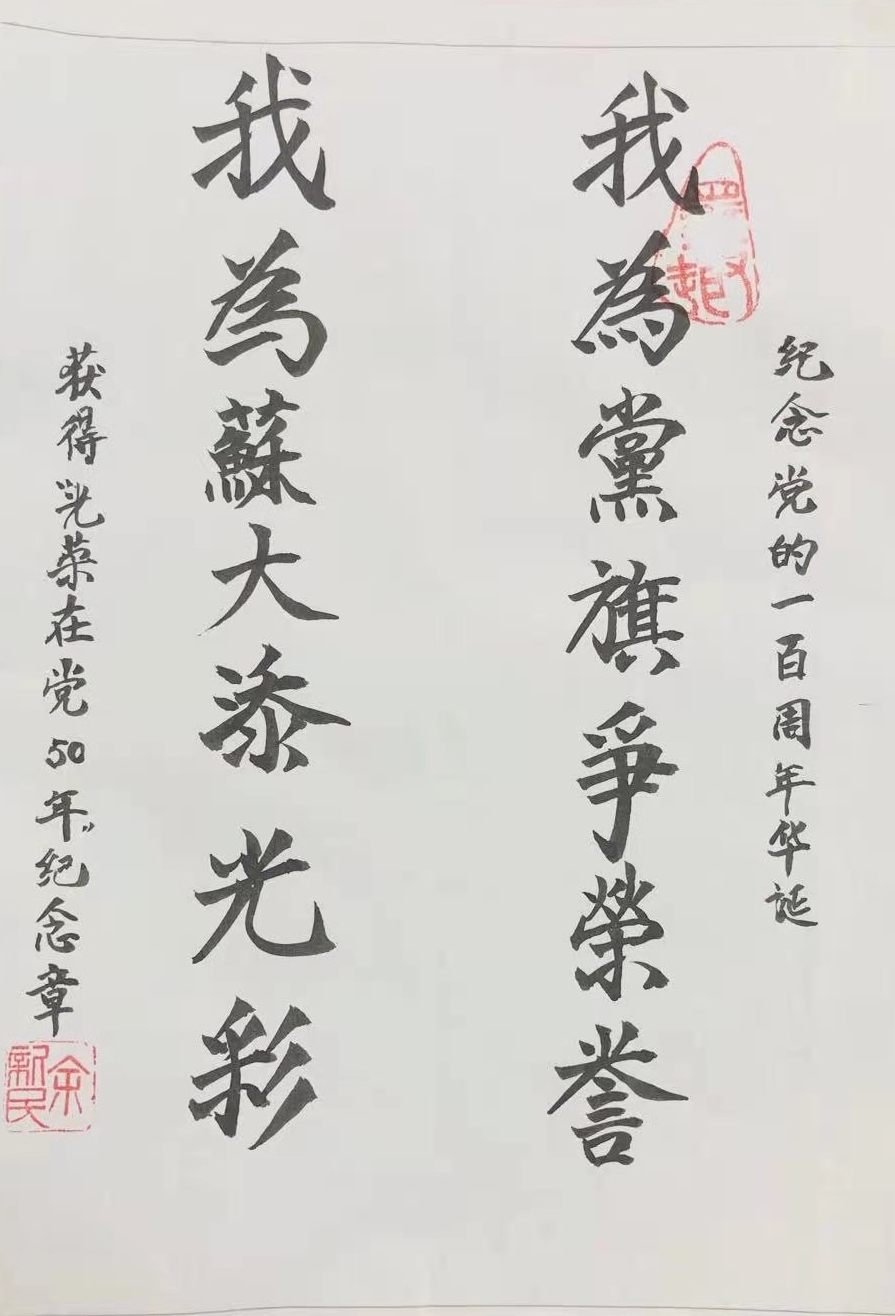 纪念党的一百周年华诞
我為黨旗爭榮誉
我為蘇大添光彩
获得“光荣在党50年”纪念章
余新民